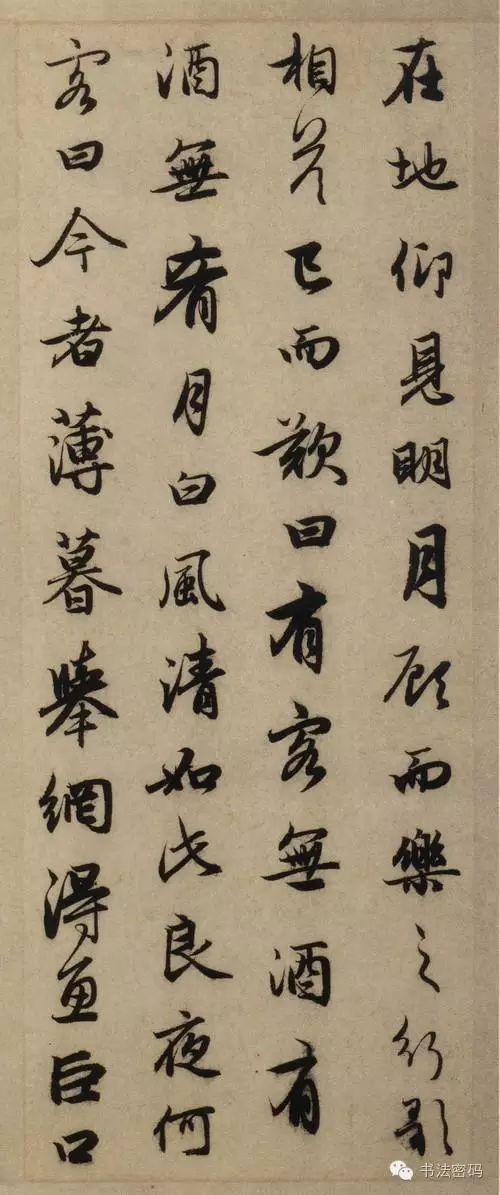 在地仰見明月顧而樂之行歌
相答已而歎曰有客無酒有
酒無肴月白風清如此良夜何
客曰今者薄暮舉網得魚巨口
书法密码